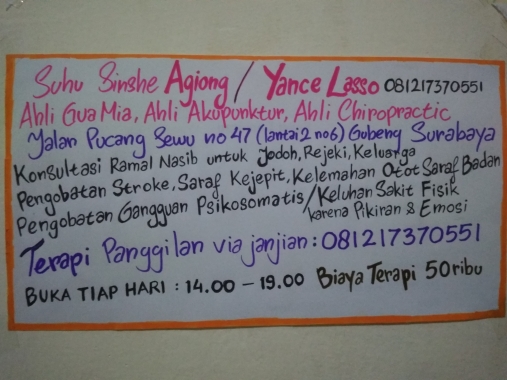 Suhu Sinshe Agiong / Yance Lasso 081217370551
Ahli Gua Mia, Ahli Akupunktur, Ahli Chiropractic
Jalan Pucang Sewu no 47 (lantai 2 no6) Gubeng Surabaya
Konsultasi Ramal Nasib untuk Jodoh, Rejeki, Keluarga
Pengobatan Stroke, Saraf Kejepit, Kelemahan Otot Saraf Badan
Pengobatan Gangguan Psikosomatis / Keluhan Sakit Fisik
karena Pikiran & Emosi
Terapi Panggilan via janjian : 081217370551
BUKA TIAP HARI : 14.00 - 19.00 Biaya Terapi 50ribu